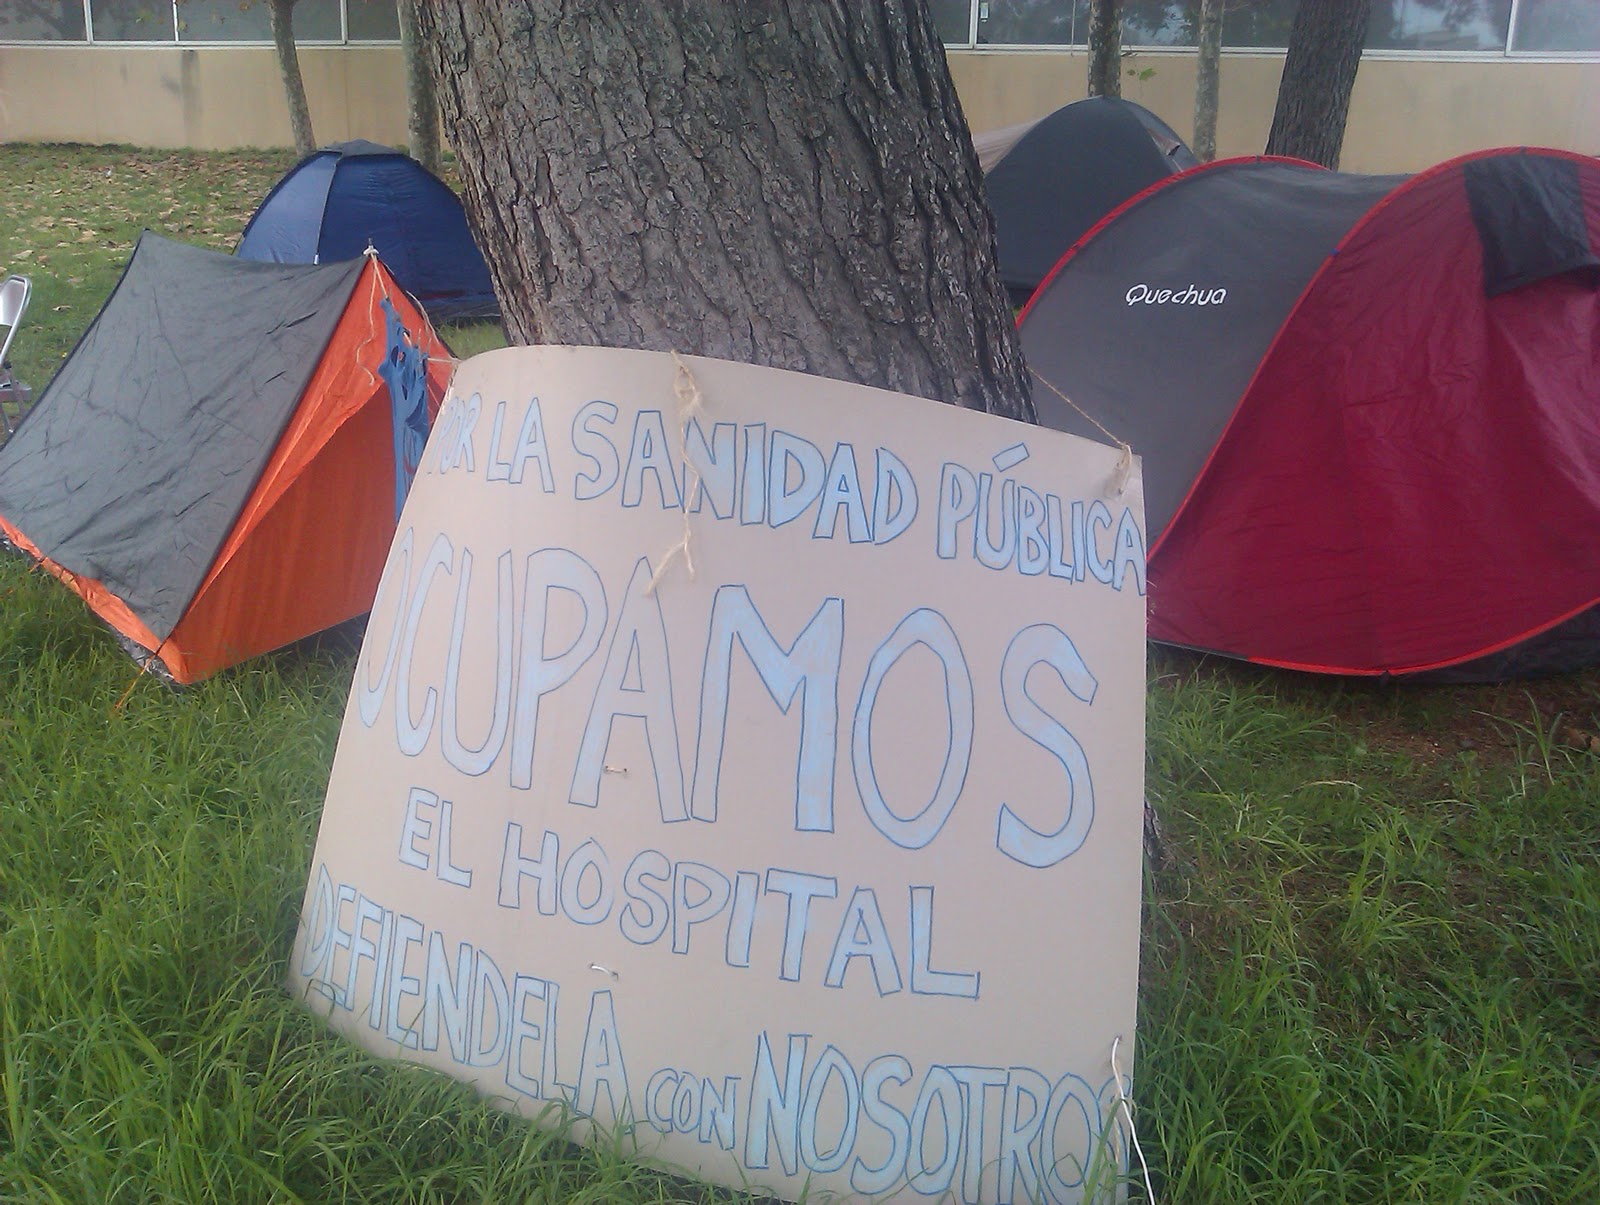 Quechua
POR LA SANIDAD PÚBLICA
OCUPAMOS
EL HOSPITAL
DEFIENDELA CON NOSOTROS